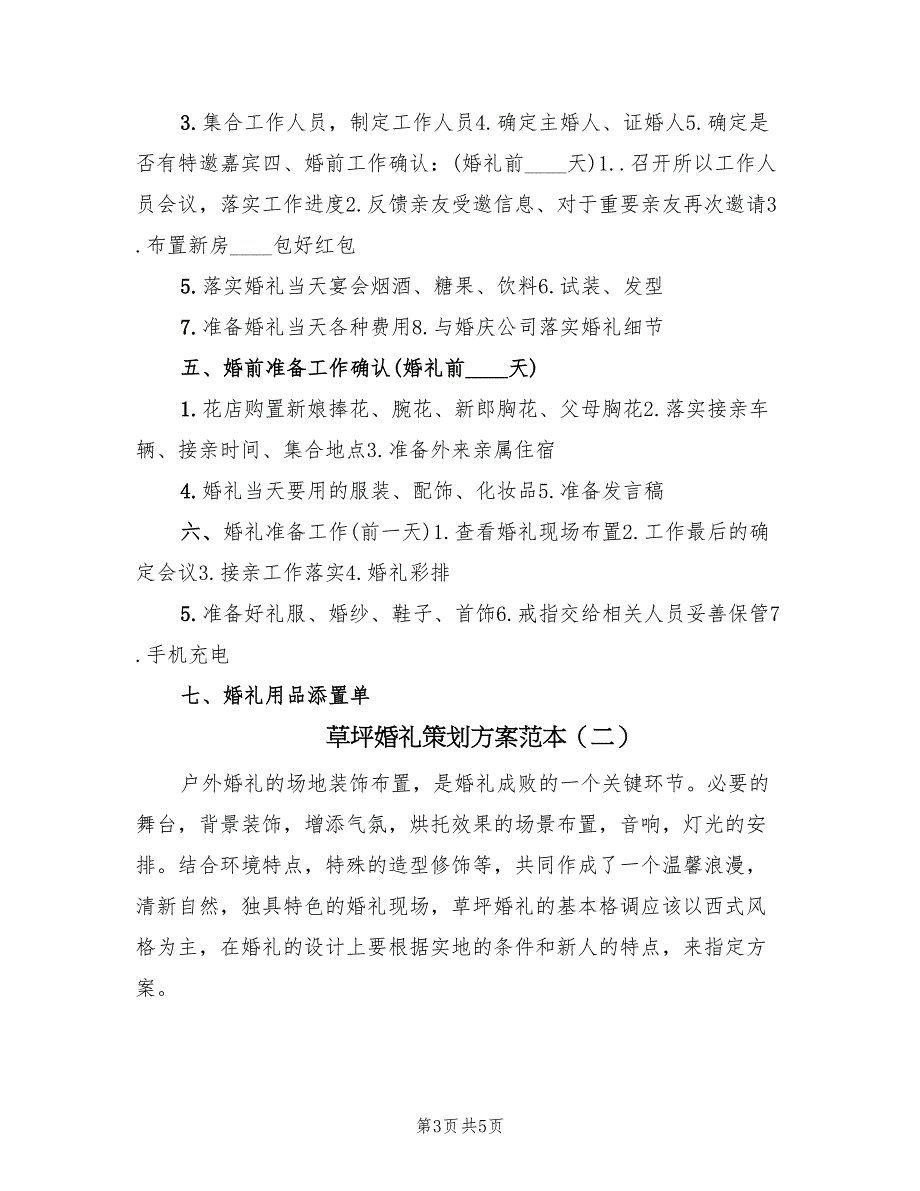 3.集合工作人员，制定工作人员4.确定主婚人、证婚人5.确定是
否有特邀嘉宾四、婚前工作确认：(婚礼前____天)1..召开所以工作人
员会议，落实工作进度2.反馈亲友受邀信息、对于重要亲友再次邀请3
.布置新房____包好红包
5.落实婚礼当天宴会烟酒、糖果、饮料6.试装、发型
7.准备婚礼当天各种费用8.与婚庆公司落实婚礼细节
五、婚前准备工作确认(婚礼前____天)
1.花店购置新娘捧花、腕花、新郎胸花、父母胸花2.落实接亲车
辆、接亲时间、集合地点3.准备外来亲属住宿
4.婚礼当天要用的服装、配饰、化妆品5.准备发言稿
六、婚礼准备工作(前一天)1.查看婚礼现场布置2.工作最后的确
定会议3.接亲工作落实4.婚礼彩排
5.准备好礼服、婚纱、鞋子、首饰6.戒指交给相关人员妥善保管7
.手机充电
七、婚礼用品添置单
草坪婚礼策划方案范本（二）
户外婚礼的场地装饰布置，是婚礼成败的一个关键环节。必要的
舞台，背景装饰，增添气氛，烘托效果的场景布置，音响，灯光的安
排。结合环境特点，特殊的造型修饰等，共同作成了一个温馨浪漫，
清新自然，独具特色的婚礼现场，草坪婚礼的基本格调应该以西式风
格为主，在婚礼的设计上要根据实地的条件和新人的特点，来指定方
案。
第3页共5页